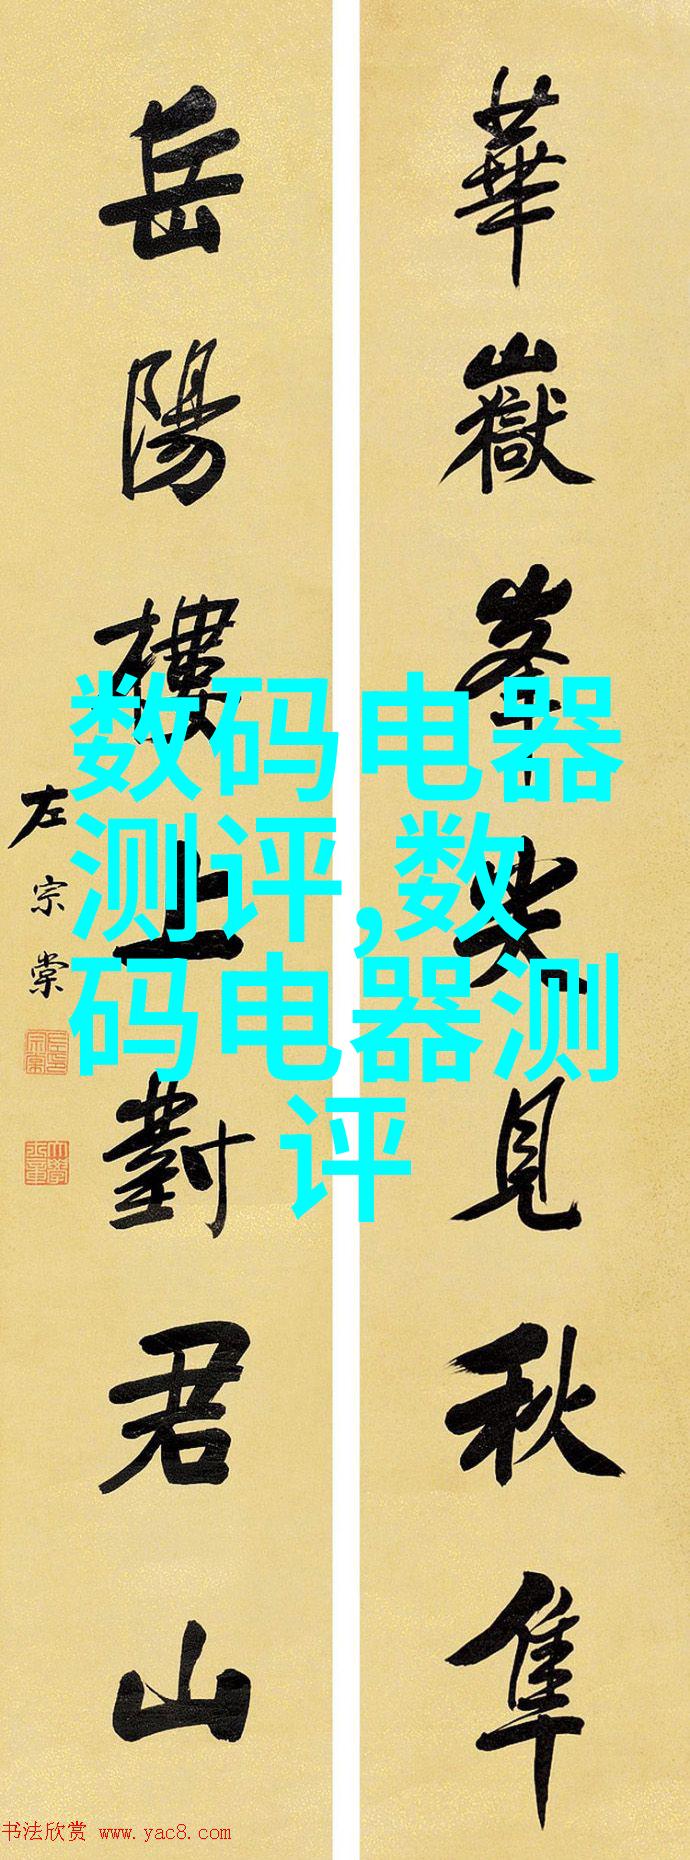 華嶽峯尖見秋隼
岳陽樓上對君山
左宗棠
数码电器
测评,数
码电器测
评
书法欣赏 www.yac8.com